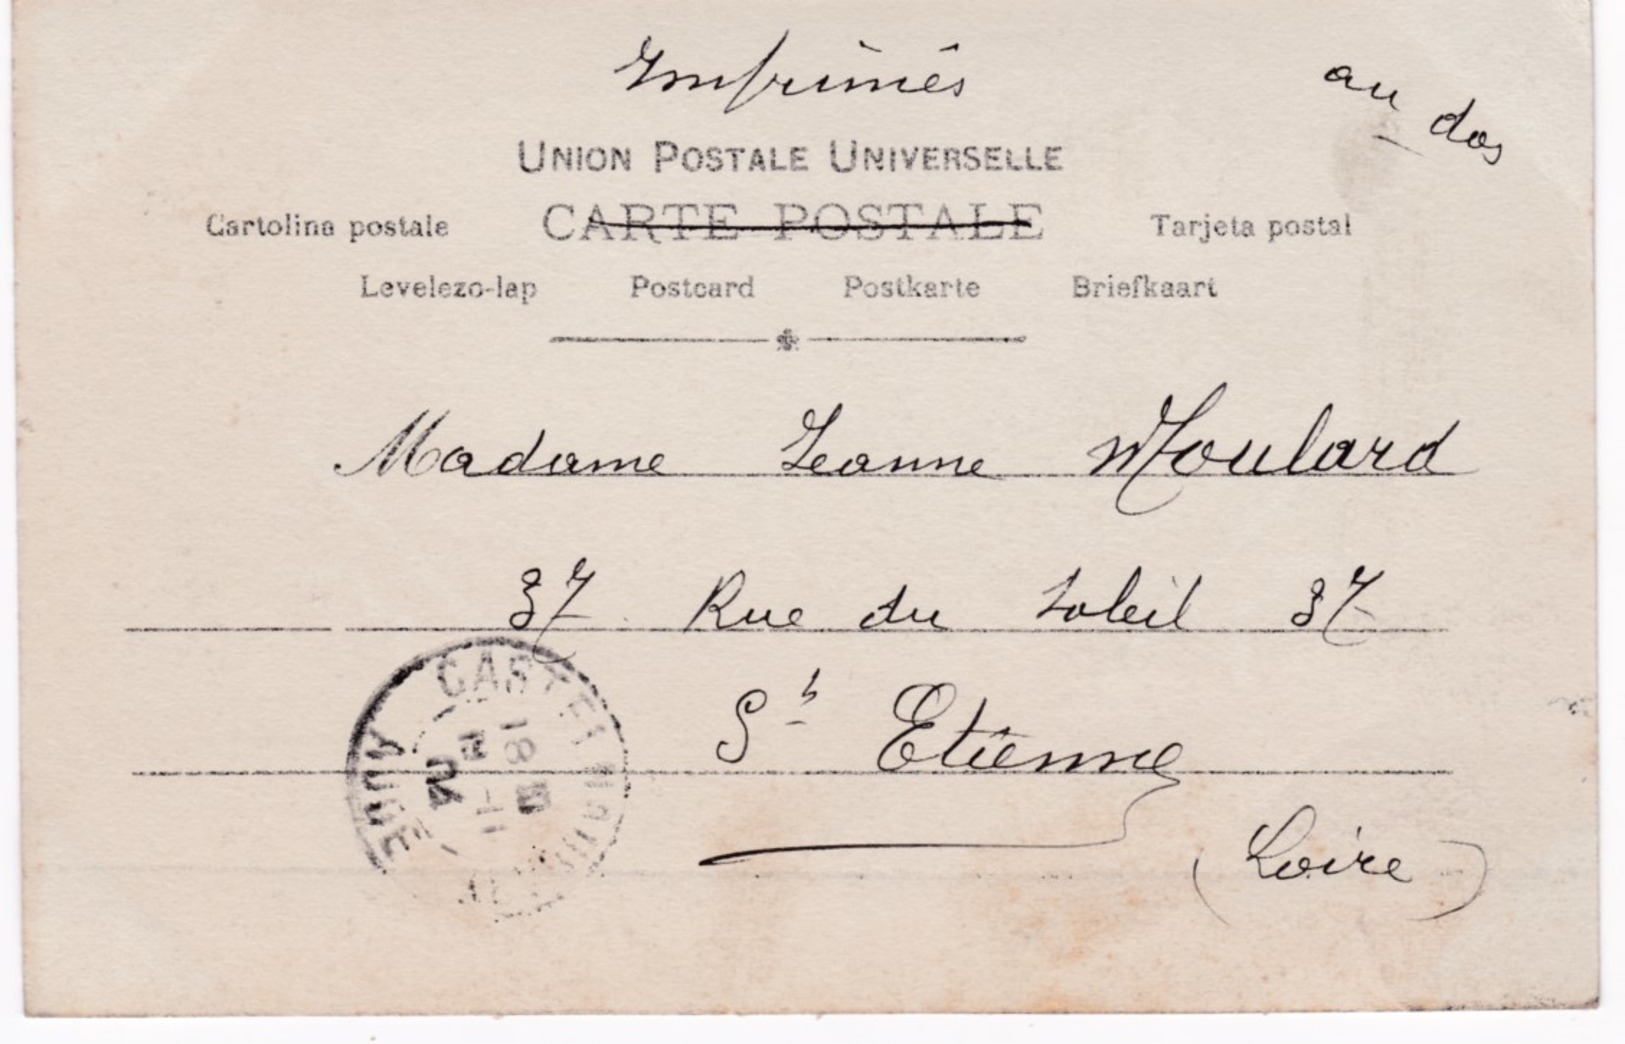 Imprimés
au dos
UNION POSTALE UNIVERSELLE
CARTE POSTALE
Cartolina postale Tarjeta postal
Levelezo-lap Postcard Postkarte Briefkaart
Madame Jeanne Moulard
37 Rue du Soleil 37
St Etienne
(Loire)
AUDE